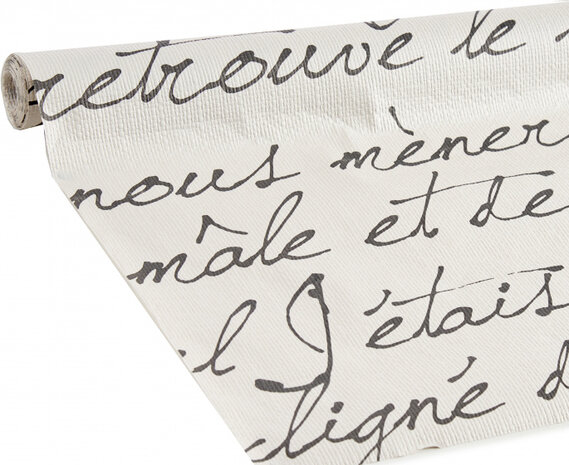 retrouve le
nous mèner
mâle et de
il J'étais
ligné d